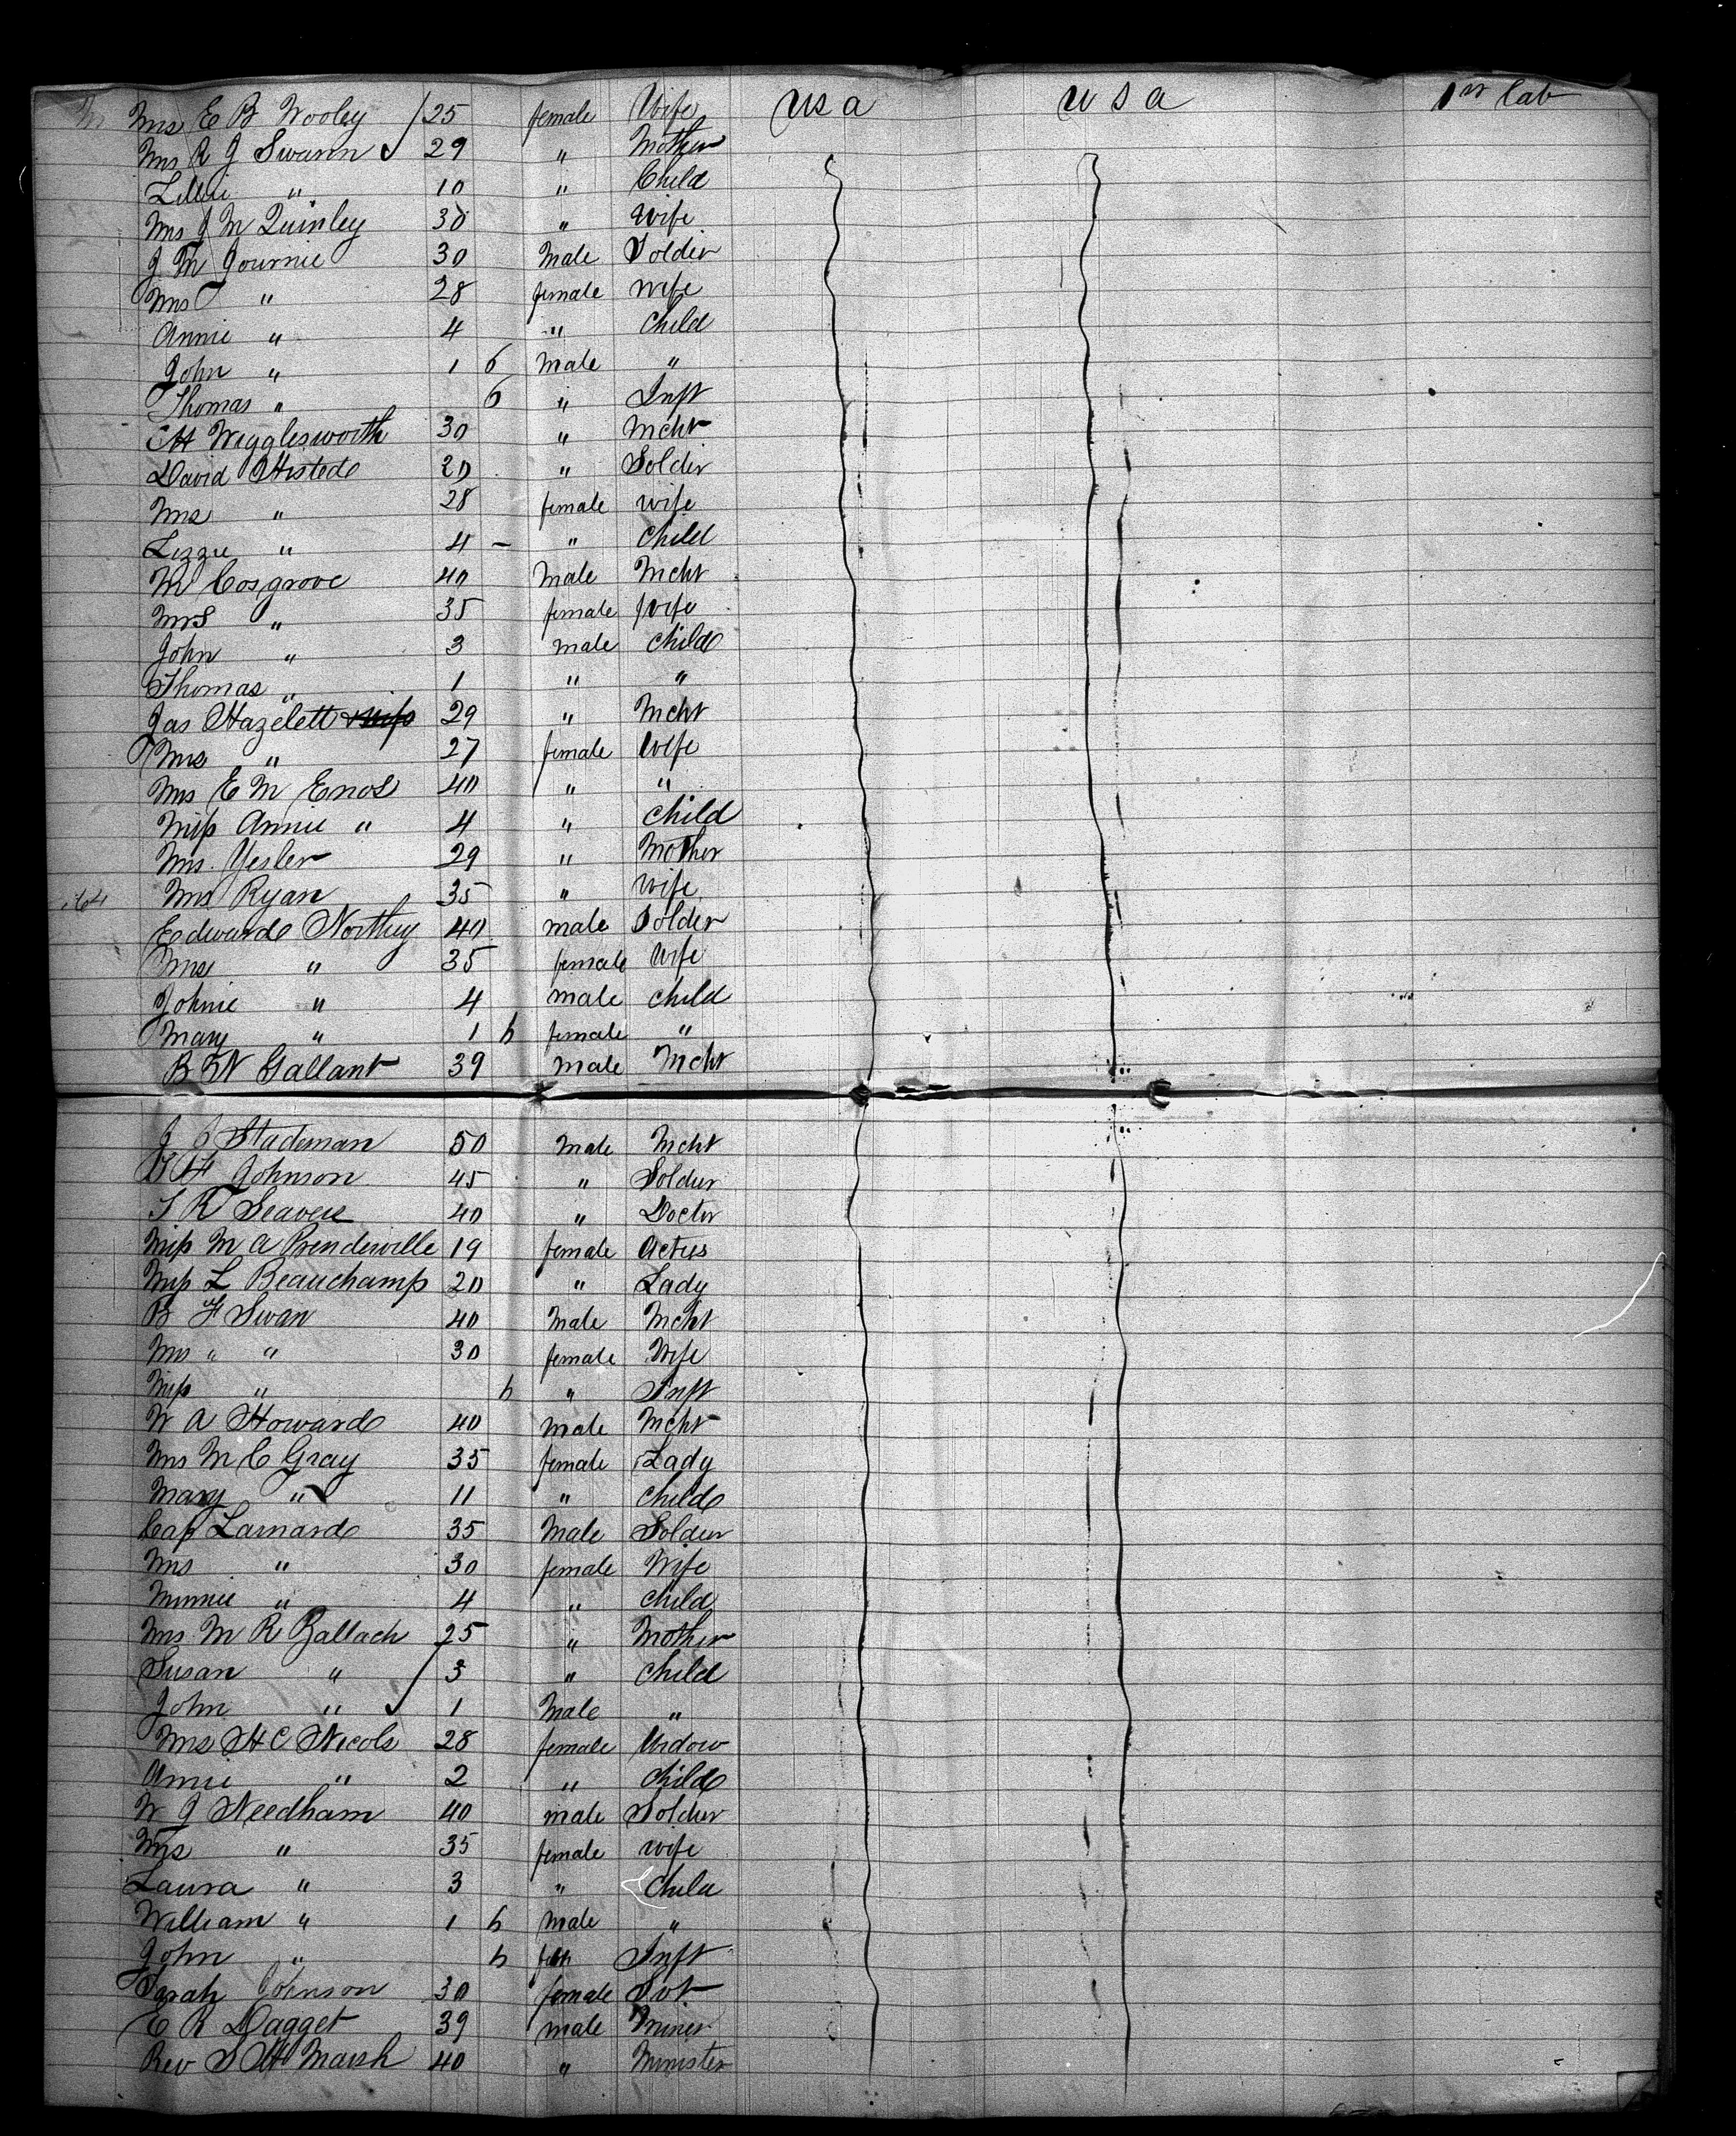 Mrs E B Wooley 25 female Wife U S A U S A 1st Cab
Mrs R J Swann 29 " Mother
Lillie " 10 " Child
Mrs J M Quinley 30 " Wife
J M Gournie 30 Male Soldier
Mrs " 28 female wife
Annie " 4 " Child
John " 1 6 Male "
Thomas " 6 " Inft
Wigglesworth 30 " Mcht
David Histed 20 " Soldier
Mrs " 28 female wife
Lizzie " 4 - " Child
M Cosgrove 40 Male Mcht
Mrs " 35 female wife
John " 3 male Child
Thomas " 1 " "
Jas Hazelett 29 " Mcht
Mrs " 27 female Wife
Mrs E M Enos 40 " "
Miss Annie " 4 " Child
Mrs. Yesler 29 " Mother
Mrs Ryan 35 " wife
Edward Northey 40 male Solder
Mrs " 35 female wife
Johnie " 4 male child
Mary " 1 6 female "
B N Gallant 39 male Mcht
J Stademan 50 Male Mcht
Johnson 45 " Soldier
T R Seavere 40 " Doctor
Miss M A Prenderville 19 female Actres
Miss L Beauchamp 20 " Lady
B F Swan 40 Male Mcht
Mrs " " 30 female Wife
Miss " 6 " Inft
W A Howard 40 Male Mcht
Mrs M C Gray 35 female Lady
Mary " 11 " Child
Cap Larnard 35 Male Soldier
Mrs " 30 female Wife
Minnie " 4 " Child
Mrs M R Zallach 25 " Mother
Susan " 3 " child
John " 1 Male "
Mrs H C Nicols 28 female Widow
Annie " 2 " Child
W J Needham 40 male Soldier
Mrs " 35 female wife
Laura " 3 " Child
William " 1 6 Male "
John " 6 Inft
Sarah Johnson 30 female Svt
E R Dagget 39 male Miner
Rev S H Marsh 40 " Minister